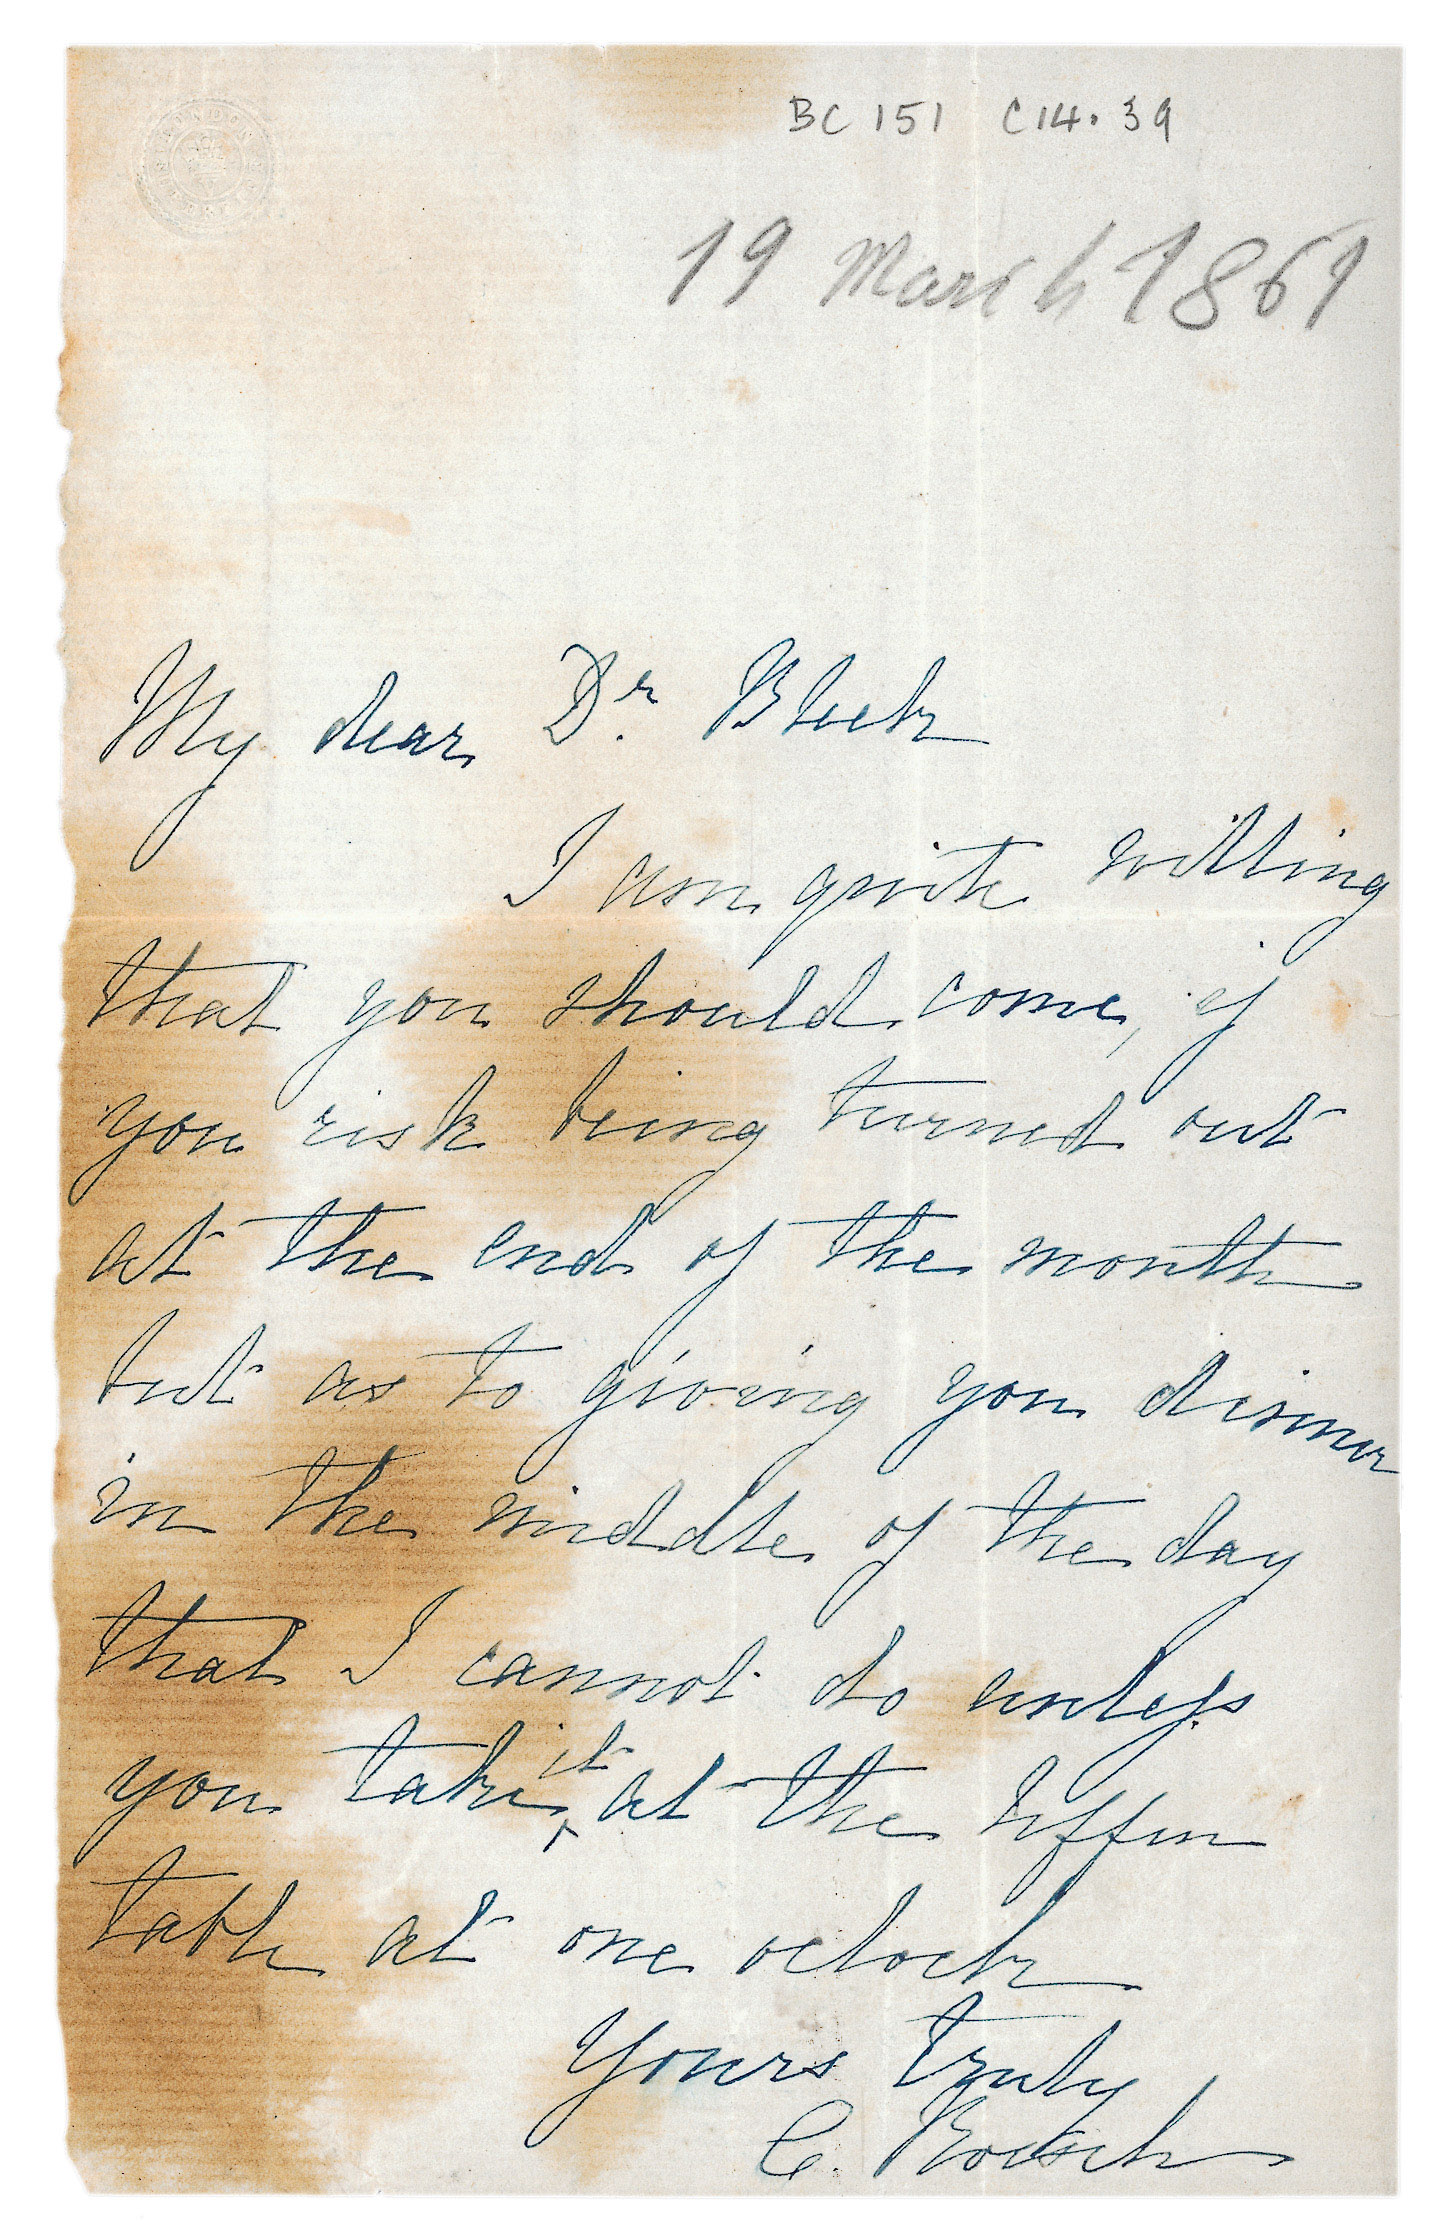 BC 151 C14.39
19 March 1861
My dear Dr. Bleek
I am quite willing
that you should come, if
you risk being turned out
at the end of the month
but as to giving you dinner
in the middle of the day
that I cannot do unless
you take it at the tiffin
table at one oclock
Yours truly
C. Roesch